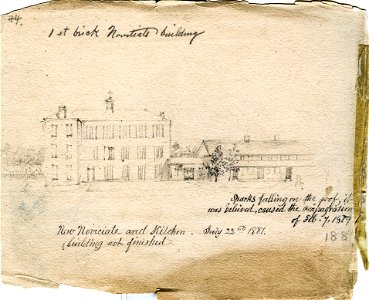 44.
1st brick Noviciate building
Sparks falling on the roof, it
was believed, caused the conflagration
of Feb. 7. 1889
188
New Noviciate and Kitchen. July 22nd 1881.
(building not finished